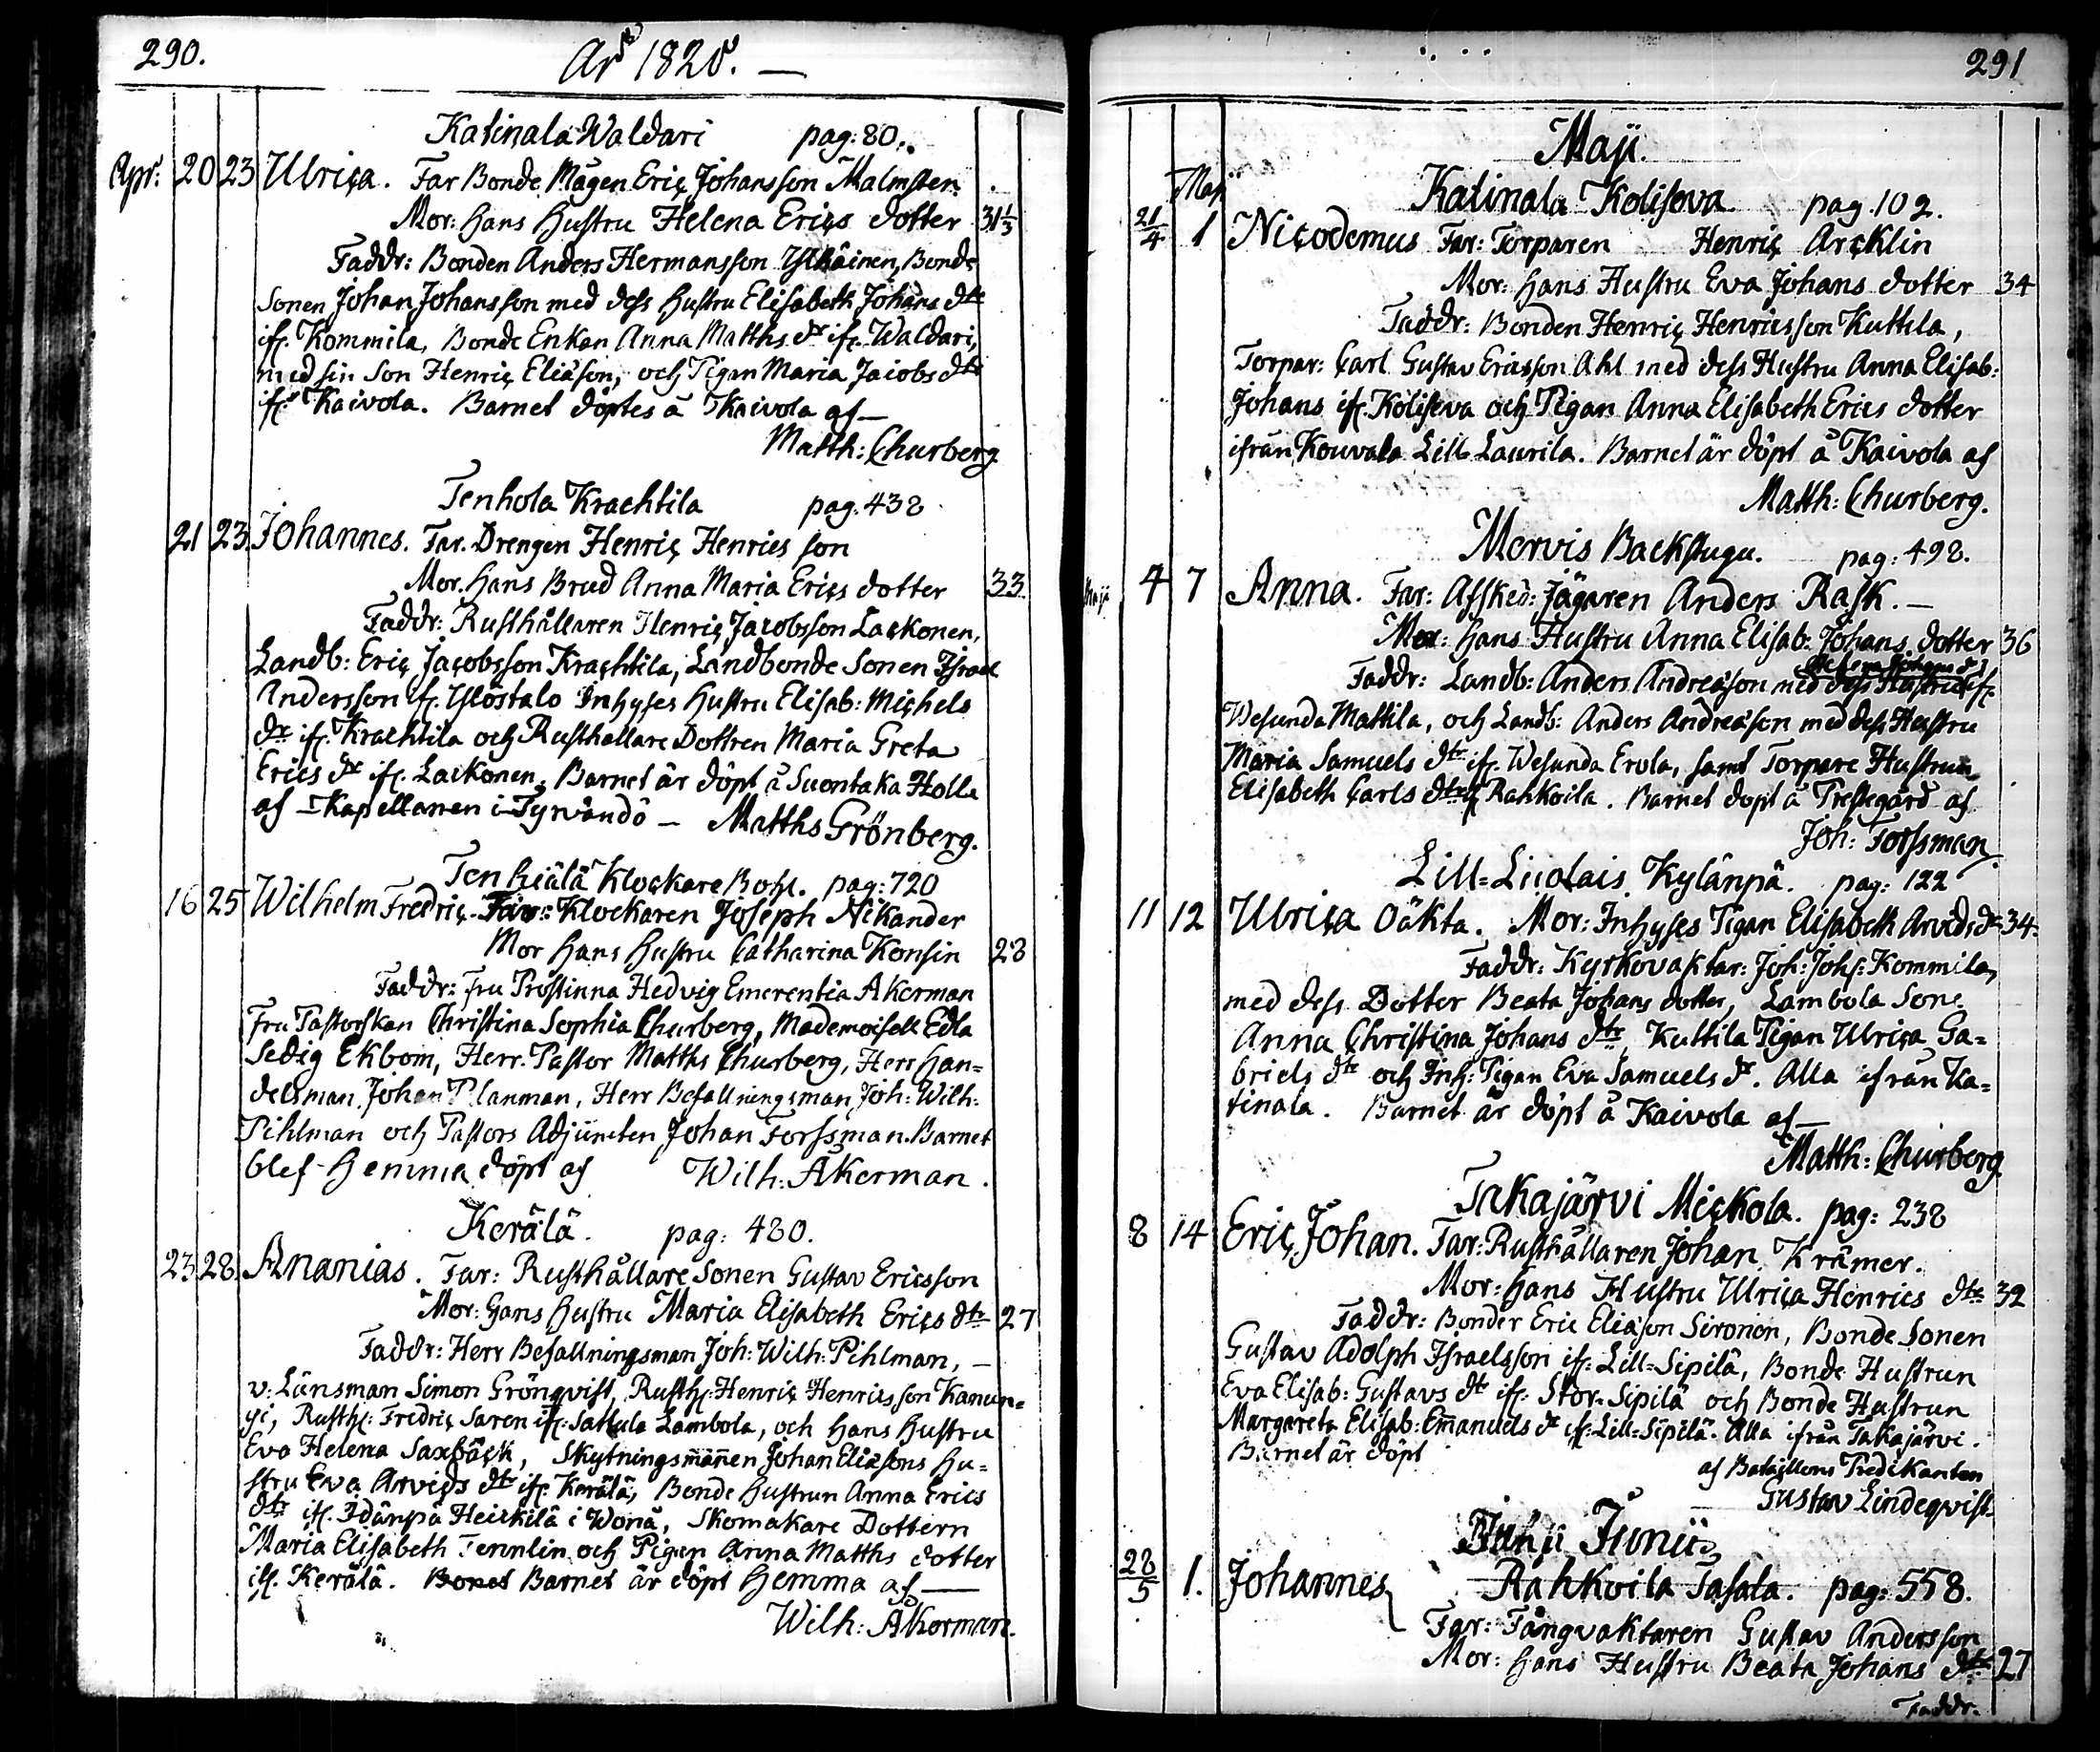 290.
År 1820. —
Katinala Waldari pag: 80.
Apr: 20 23 Ulrica. Far Bonde Mågen Eric Johansson Malmsten.
Mor: Hans Hustru Helena Erics dotter 31 1/3
Faddr: Bonden Anders Hermansson Bonde
Sonen Johan Johansson med dess Hustru Elisabeth Johans dtr
ifr. Kommila, Bonde Enkan Anna Matths dr ifr. Waldari,
med sin Son Henric Eliæson, och Pigan Maria Jacobs dtr
ifr. Kaivola. Barnet döptes å Kaivola af —
Matth: Churberg
Tenhola Krachtila pag: 438
21 23. Johannes. Far. Drengen Henric Henrics son
Mor. Hans Brud Anna Maria Erics dotter 33.
Faddr: Rusthållaren Henric Jacobsson Lackonen,
Landb: Eric Jacobsson Krachtila, Landbonde Sonen Israel
Andersson ifr. Ylöstalo Inhyses Hustru Elisab: Michels
dr ifr. Krachtila och Rusthållare Dottren Maria Greta
Erics dr ifr. Lackonen. Barnet är döpt å Suontaka Holla
af Kapellanen i Tyrvändö — Matths Grönberg.
Tenhiälä Klockare Bohl. pag: 720
16 25 Wilhelm Fredric. Far: Klockaren Joseph Nikander
Mor Hans Hustru Catharina Konsin 28
Faddr: Fru Prostinna Hedvig Emerentia Åkerman
Fru Pastorskan Christina Sophia Churberg, Mademoiselle Edla
Sedig Ekbom, Herr Pastor Matths Churberg, Herr Han=
delsman Johan Planman, Herr Befallningsman Joh: Wilh:
Pihlman och Pastors Adjuncten Johan Forssman. Barnet
blef Hemma döpt af Wilh: Åkerman.
Kerälä. pag: 480.
23. 28. Ananias. Far: Rusthållare Sonen Gustav Ericsson
Mor: Hans Hustru Maria Elisabeth Erics dtr 27
Faddr: Herr Befallningsman Joh: Wilh: Pihlman, —
v: Länsman Simon Grönqvist, Rusth: Henric Henricsson Kanun=
gi, Rusth: Fredric Saren ifr: Sattula Lambola, och Hans Hustru
Eva Helena Saxbäck, Skytningsmannen Johan Eliæsons Hu=
stru Eva Arvids dtr ifr. Kerälä, Bonde Hustrun Anna Erics
dtr ifr. Idänpä Heickilä i Wånå, Skomakare Dottern
Maria Elisabeth Tennlin och Pigan Anna Matths dotter
ifr. Kerälä. Barnet är döpt Hemma af —
Wilh: Åkerman.
291
Maji.
Maji
Katinala Koliseva pag. 102.
21/4 1 Nicodemus Far: Torparen Henric Arcklin
Mor: Hans Hustru Eva Johans dotter 34
Faddr: Bonden Henric Henricsson Kuttila,
Torpar: Carl Gustav Ericsson Ahl med dess Hustru Anna Elisab:
Johans ifr. Kolisева och Pigan Anna Elisabeth Erics dotter
ifrån Kouvala Lill Laurila. Barnet är döpt å Kaivola af
Matth: Churberg.
Mervis Backstugu. pag: 498.
Maji 4 7 Anna. Far: Afsked: Jägaren Anders Rask. —
Mor: Hans Hustru Anna Elisab: Johans dotter 36
Faddr: Landb: Anders Andreæson med dess Hustru ifr.
Wesunda Mattila, och Landb: Anders Andreæson med dess Hustru
Maria Samuels dtr ifr. Wesunda Erola, samt Torpare Hustrun
Elisabeth Carls dtr Rahkoila. Barnet döpt å Prestegård af
Joh: Forssman
Lill=Liuolais Kylänpä. pag: 122
11 12 Ulrica Oäkta. Mor: Inhyses Pigan Elisabeth Arvids dr 34.
Faddr: Kyrkovaktar: Joh: Johs: Kommila,
med dess Dotter Beata Johans dotter, Lambola Sone
Anna Christina Johans dtr, Kuttila Pigan Ulrica Ga=
briels dtr och Inh: Pigan Eva Samuels dr. Alla ifrån Ka=
tinala. Barnet är döpt å Kaivola af —
Matth: Churberg
Takajärvi Mickola. pag: 238
8 14 Eric Johan. Far: Rusthållaren Johan Krämer.
Mor: Hans Hustru Ulrica Henrics dtr 32
Faddr: Bonden Eric Eliæson Sironen, Bonde Sonen
Gustav Adolph Israelsson ifr: Lill=Sipilä, Bonde Hustrun
Eva Elisab: Gustavs dr ifr. Stor=Sipilä och Bonde Hustrun
Margareta Elisab: Emanuels dr ifr: Lill=Sipilä. Alla ifrån Takajärvi.
Barnet är döpt
af Bataillons Predikanten
Gustav Lindeqvist.
Junii
28/5 1. Johannes Rahkoila Tasala. pag: 558.
Far: Fångvaktaren Gustav Andersson
Mor: Hans Hustru Beata Johans dtr 27
Faddr.